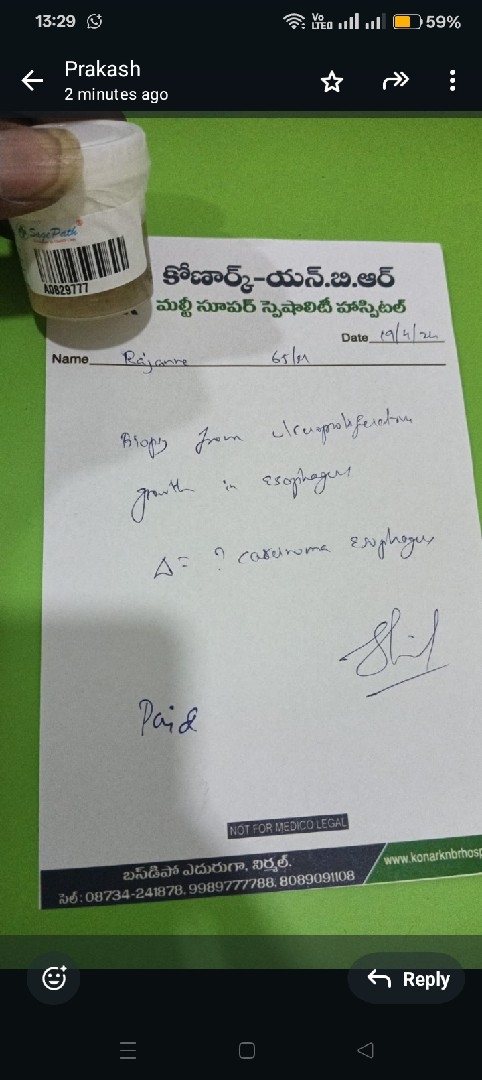 13:29
Vo LTE
59%
Prakash
2 minutes ago
SagePath
A0829777
కోణార్క్-యన్.బి.ఆర్
మల్టీ సూపర్ స్పెషాలిటీ హాస్పిటల్
Date 19/4/24
Name Rajanna 65/M
Biopsy from ulceroproliferative
growth in esophagus
Δ= ? carcinoma esophagus
Paid
NOT FOR MEDICO LEGAL
బస్‌డిపో ఎదురుగా, నిర్మల్.
సెల్: 08734-241878, 9989777788, 8089091108
www.konarknbrhosp
Reply